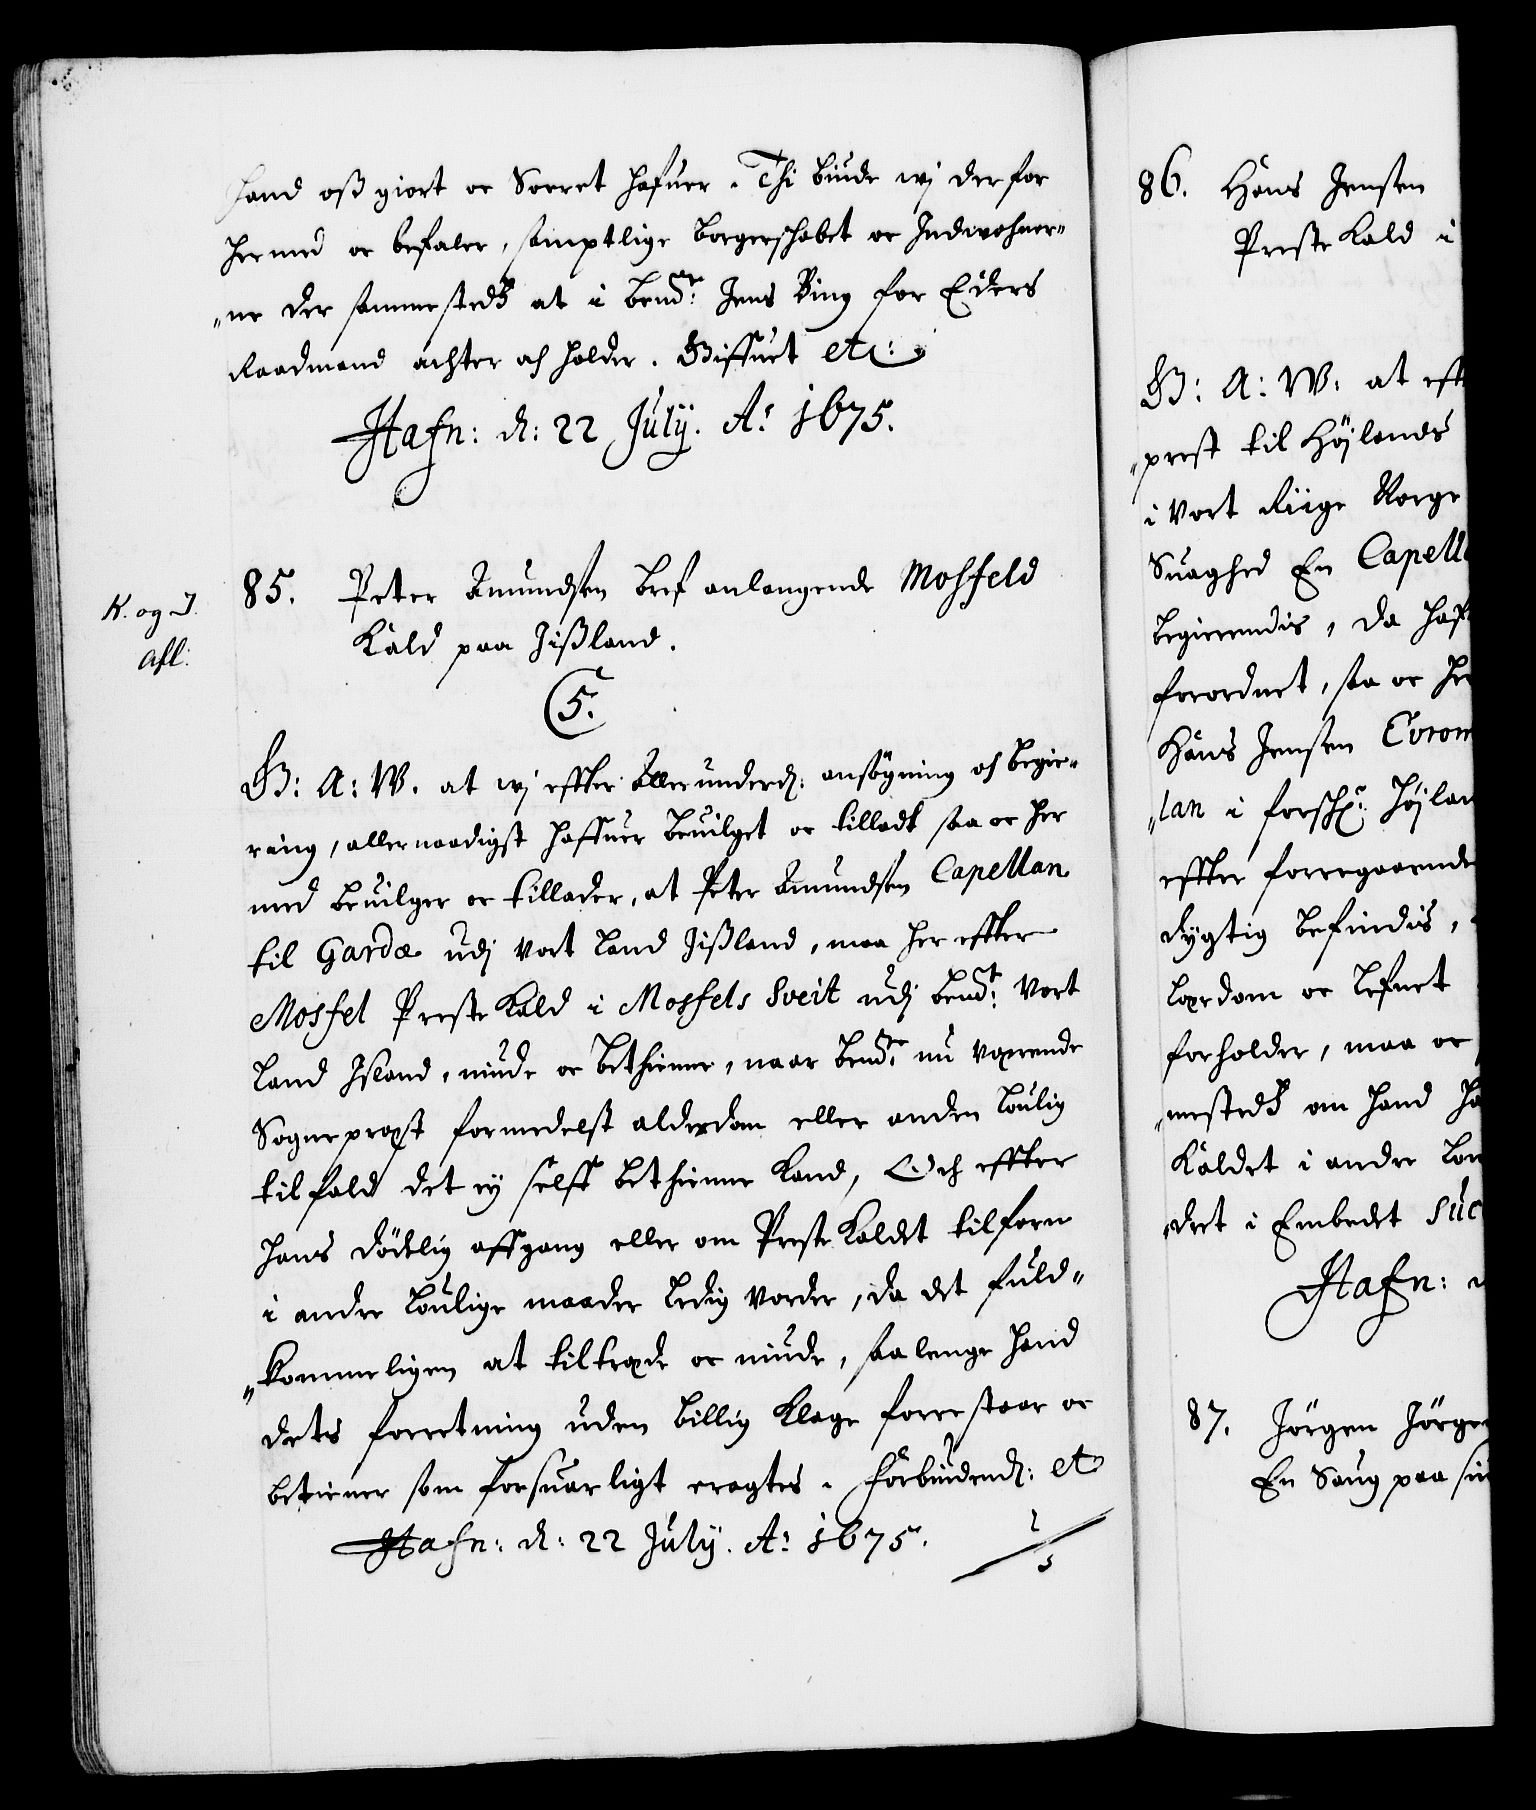 hand oß giort oc Sorret hafuer. Thi biude wj derfor
hermed oc befaler, samptlige borgerskabet oc Indwohner„
„ne der sammestedß at i bemd.te Jens Bing for Eders
Raadmand achter oc holder. Giffuet etc:
Hafn: d: 22 July. Ao 1675.
K. og I.
Afl:
85. Peter Amundsen bref anlangende Mosfeld
Kald paa Jißland.
5.
G: A: W. at wj effter Allerunderd: ansøgning oc begie„
ring, allernaadigst haffuer beuilget oc tilladt saa oc her
med beuilger oc tillader, at Peter Amundsen Capellan
til Gardæ udj vort land Jißland, maa her effter
Mosfel Preste Kald i Mosfels Sveit udj bemd:t Vort
land Island, niude oc bethienne, naar bemd.te nu værende
Sogneprest formedelst alderdom eller anden loulig
tilfald det ey selff bethienne kand, Och effter
hans dödelig affgang eller om Preste Kaldet tilforn
i andre loulige maader ledig vorder, da det fuld„
„kommeligen at tiltræde oc niude, saa lenge hand
dets forretning uden billig klage forrestaar oc
betiener som forsuarligt eragtes. Forbiudend: etc
Hafn: d: 22 July. Ao 1675.
86. Hans Jensen
Preste Kald i
G: A: W: at eff
„prest til Höjlands
i Vort Riige Norge
Suaghed En Capell
begierendis, da haf
forordnet, saa oc he
Hans Jensen Coron
„lan i forschr: Höjlan
effter foregaaende
dygtig befindis,
lærdom oc lefnet
forholder, maa oc
„mestedß om hand ha
Kaldet i andre lou
„det i Embedet suc
Hafn: d
87. Jörgen Jörgen
En Saug paa sin